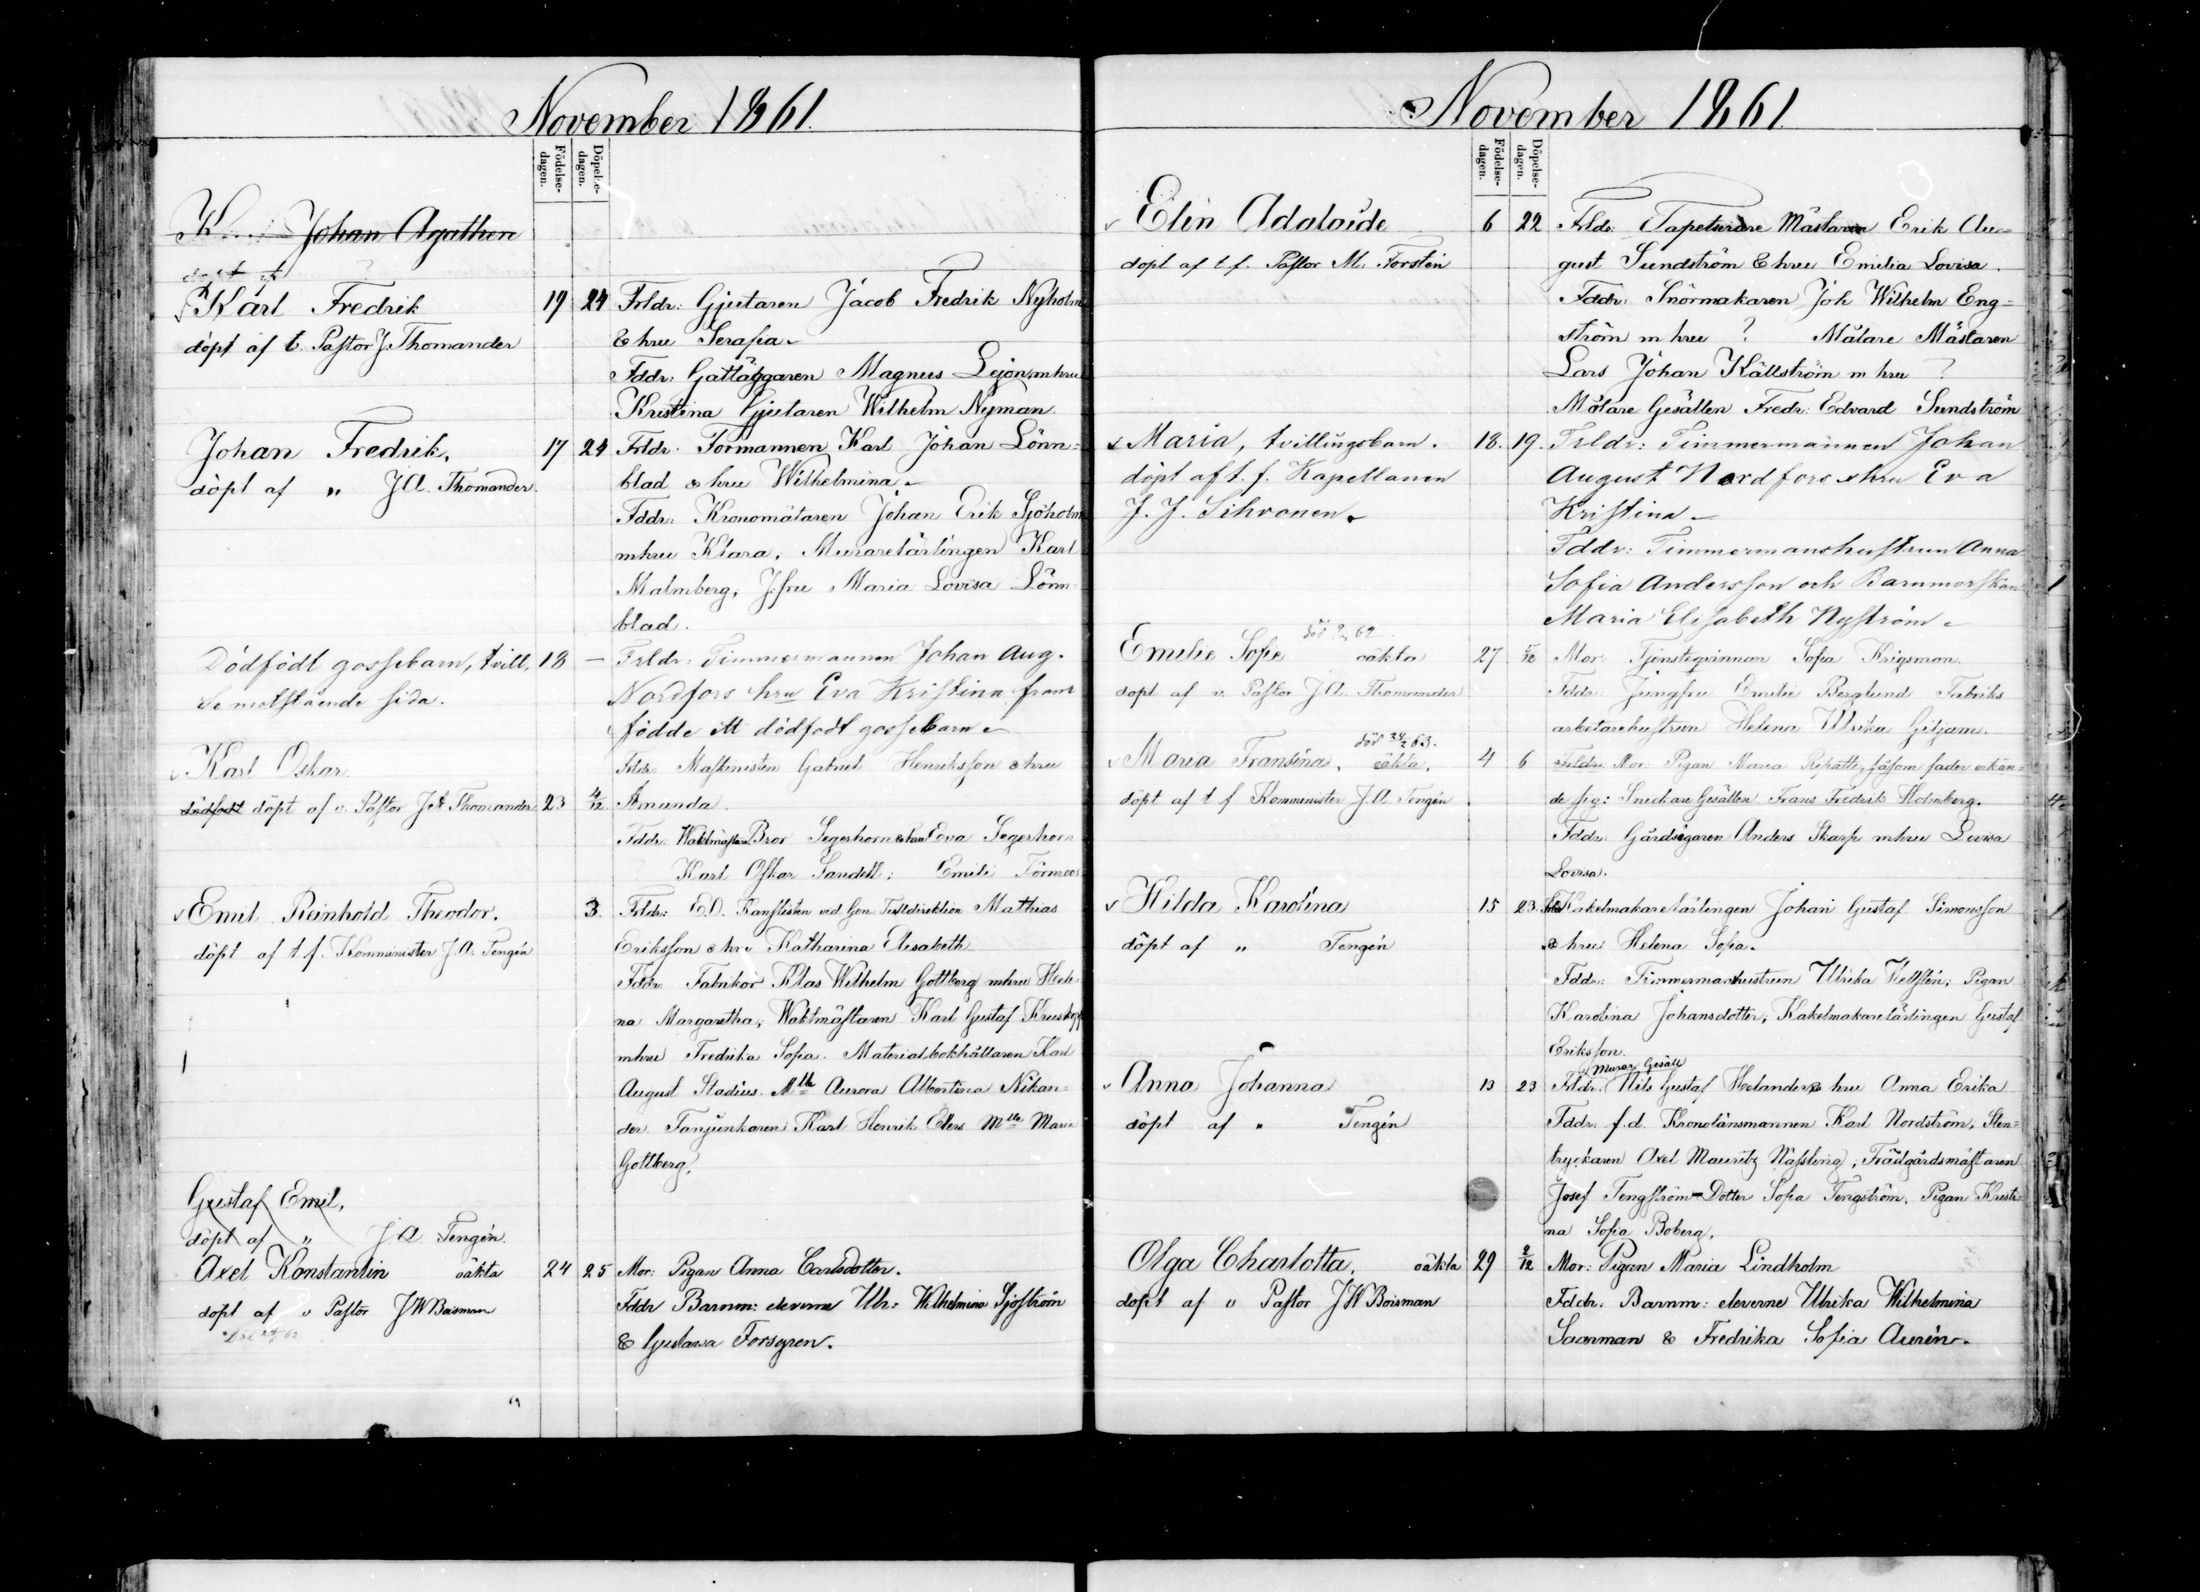 November 1861.
Födelse-
dagen.
Döpelse-
dagen.
Johan Agathon
döpt af
Karl Fredrik 19 24 Frldr: Gjutaren Jacob Fredrik Nyholm
döpt af v. Pastor J. Thomander & hru Serafia
Fddr: Gatläggaren Magnus Lejon, m hru
Kristina Gjutaren Wilhelm Nyman.
Johan Fredrik, 17 24 Frldr: Formannen Karl Johan Lönn=
döpt af " J A. Thomander. blad & hru Wilhelmina
Fddr: Kronomätaren Johan Erik Sjöholm
m hru Klara, Murarelärlingen Karl
Malmberg, Jfru Maria Lovisa Lönn
blad.
Dödfödt gossebarn, tvill, 18 — Frldr: Timmermannen Johan Aug.
Se motstående sida. Nordfors hru Eva Kristina fram
födde ett dödfödt gossebarn
Karl Oskar. Frldr: Maskinisten Gabriel Henriksson & hru
dödfödt döpt af v. Pastor J A Thomander 23 4/12 Amanda
Fddr: Waktmästare Bror Segerhorn & hru Eva Segerhorn
Karl Oskar Sandell; Emili Törnroos
Emil Reinhold Theodor. 3. Frldr: E.O. Kanslisten vid Gen. Tulldirektion Mathias
döpt af t.f. Komminister J.A. Tengén Eriksson & hru Katharina Elisabeth
Fddr: Fabrikör Klas Wilhelm Gottberg m hru Hele
na Margaretha, Waktmästaren Karl Gustaf Kruskopf
m hru Fredrika Sofia. Materialbokhållaren Karl
August Stadius. Mlle Aurora Albertina Nikan=
der. Fanjunkaren Karl Henrik Elers Mlle Maria
Gottberg.
Gustaf Emil,
döpt af " J A. Tengén.
Axel Konstantin oäkta 24 25 Mor: Pigan Anna Carlsdotter.
döpt af v Pastor J W Boisman Fddr Barnm: eleverne Ulr: Wilhelmina Sjöström
& Gustava Forsgren.
November 1861.
Födelse-
dagen.
Döpelse-
dagen.
Elin Adalaide 6 22 Frldr: Tapetserare Mästaren Erik Au=
döpt af t.f. Pastor M. Forstén gust Sundström & hru Emilia Lovisa.
Fddr: Snörmakaren Joh Wilhelm Eng=
ström m hru ? Målare Mästaren
Lars Johan Källström m hru ?
Målare Gesällen Fredr: Edvard Sundström
Maria, tvillingsbarn. 18. 19. Frldr: Timmermannen Johan
döpt af t.f. Kapellanen August Nordfors & hru Eva
J. J. Sihvonen. Kristina
Fddr: Timmermanshustrun Anna
Sofia Andersson och Barnmorskan
Maria Elisabeth Nyström
Emelie Sofie oäkta 27 1/12 Mor: Tjensteqvinnan Sofia Krigsman.
döpt af v. Pastor J.A. Thomander Fddr: Jungfru Emelie Berglund Fabriks
arbetarehustrun Helena Ulrika Giljam.
död 24/2 63.
Maria Fransina, oäkta, 4 6 Frldr: Mor: Pigan Maria, såsom fader erkän=
döpt af t f Komminister J.A. Tengén de sig: Snickare Gesällen Frans Fredrik Holmberg.
Fddr: Gårdsegaren Anders Skarp m hru Lovisa
Lovisa.
Hilda Karolina 15 23 Frldr Kakelmakarelärlingen Johan Gustaf Simonsson
döpt af " Tengén & hru Helena Sofia.
Fddr: Timmermanhustrun Ulrika Hellstén; Pigan
Karolina Johansdotter, Kakelmakarelärlingen Gustaf
Eriksson.
Murar Gesäll
Anna Johanna 13 23 Frldr: Nils Gustaf Helander & hru Anna Erika
döpt af " Tengén Fddr: f.d. Kronolänsmannen Karl Nordström, Sten=
tryckaren Axel Mauritz Nässling, Trädgårdsmästaren
Josef Tengström - Dotter Sofia Tengström. Pigan Kristi=
na Sofia Boberg.
Olga Charlotta, oäkta 29 2/12 Mor: Pigan Maria Lindholm
döpt af v Pastor J W Boisman Fddr: Barnm: eleverne Ulrika Wilhelmina
Saarman & Fredrika Sofia Aurén.